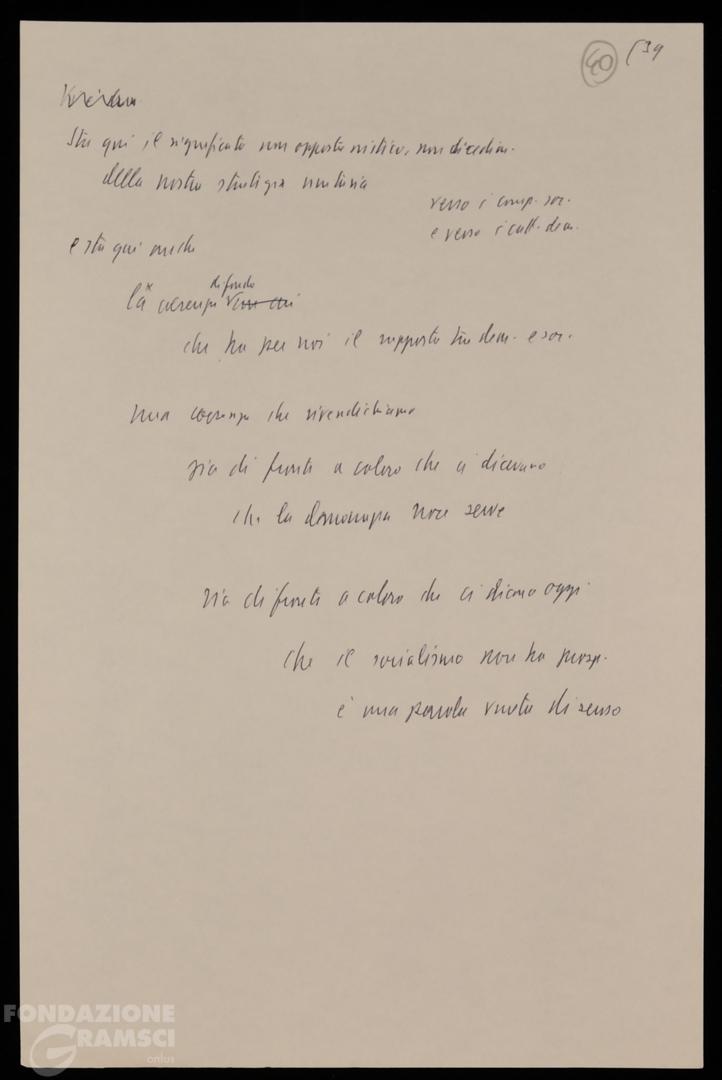 40 139
Sta qui il significato non opportunistico, non di cedim.
della nostra strategia unitaria
verso i comp. soc.
e verso i catt. dem.
e sta qui anche
la coerenza di fondo
che ha per noi il rapporto tra dem. e soc.
una coerenza che rivendichiamo
sia di fronte a coloro che ci dicevano
che la democrazia non serve
sia di fronte a coloro che ci dicono oggi
che il socialismo non ha prosp.
è una parola vuota di senso
FONDAZIONE
GRAMSCI
onlus